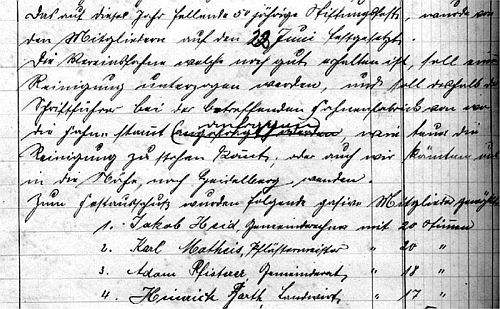 Das auf dieses Jahr fallende 50 jährige Stiftungsfest, wurde von
den Mitgliedern auf den 22 Juni festgesetzt.
Die Vereinsfahne welche noch gut erhalten ist, soll einer
Reinigung unterzogen werden, und soll deshalb der
Schriftführer bei der betreffenden Fahnenfabrick von wo
die Fahne stamt anfragen wie teuer die
Reinigung zu stehen komt, oder auch wir könten uns
in die Nähe, nach Heidelberg, wenden.
Zum Festausschuss wurden folgende pasive Mitglieder gewählt
1. Jakob Heid, Gemeinderechner mit 20 Stimmen
2. Karl Matheis, Pflästermeister " 20 "
3. Adam Pfisterer Gemeinderat, " 18 "
4. Heinrich Barth, Landwirt, " 17 "